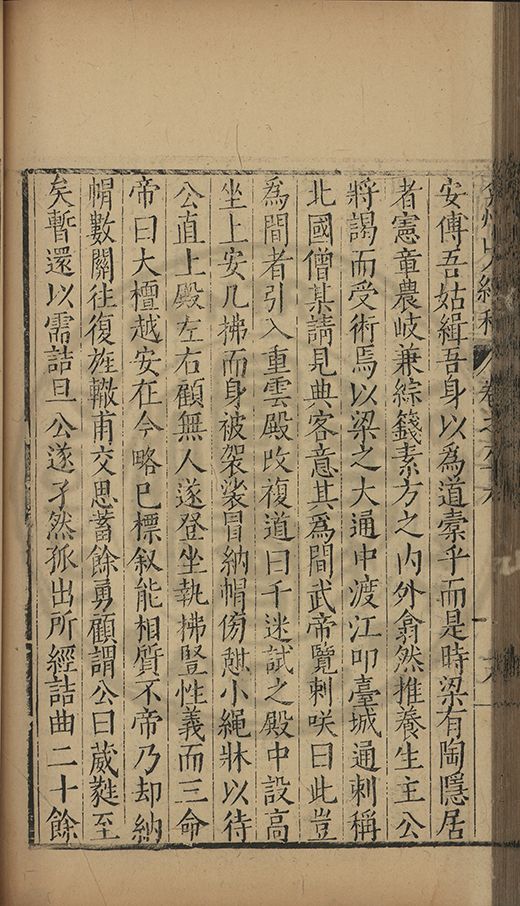 安傅吾姑緝吾身以爲道索乎而是時梁有陶隱居
者憲章農岐兼綜籛素方之内外翕然推養生主公
將謁而受術焉以梁之大通中渡江叩臺城通刺稱
北國僧某請見典客意其爲間武帝覽刺咲曰此豈
爲間者引入重雲殿改複道曰千迷試之殿中設高
坐上安几拂而身被袈裟冒納帽傍憇小繩牀以待
公直上殿左右顧無人遂登坐執拂豎性義而三命
帝曰大檀越安在今略已標叙能相質不帝乃却納
帽數關往復旌轍甫交思蓄餘勇顧謂公曰葳蕤至
矣暫還以需詰旦公遂孑然孤出所經詰曲二十餘